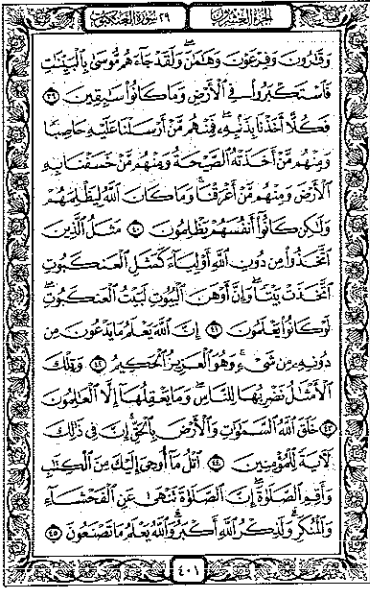 الجزء العشرون
٢٩ سورة العنكبوت
وَقَٰرُونَ وَفِرْعَوْنَ وَهَٰمَٰنَ ۖ وَلَقَدْ جَآءَهُم مُّوسَىٰ بِٱلْبَيِّنَٰتِ
فَٱسْتَكْبَرُوا۟ فِى ٱلْأَرْضِ وَمَا كَانُوا۟ سَٰبِقِينَ ٣٩
فَكُلًّا أَخَذْنَا بِذَنۢبِهِۦ ۖ فَمِنْهُم مَّنْ أَرْسَلْنَا عَلَيْهِ حَاصِبًا
وَمِنْهُم مَّنْ أَخَذَتْهُ ٱلصَّيْحَةُ وَمِنْهُم مَّنْ خَسَفْنَا بِهِ
ٱلْأَرْضَ وَمِنْهُم مَّنْ أَغْرَقْنَا ۚ وَمَا كَانَ ٱللَّهُ لِيَظْلِمَهُمْ
وَلَٰكِن كَانُوٓا۟ أَنفُسَهُمْ يَظْلِمُونَ ٤٠ مَثَلُ ٱلَّذِينَ
ٱتَّخَذُوا۟ مِن دُونِ ٱللَّهِ أَوْلِيَآءَ كَمَثَلِ ٱلْعَنكَبُوتِ
ٱتَّخَذَتْ بَيْتًا ۖ وَإِنَّ أَوْهَنَ ٱلْبُيُوتِ لَبَيْتُ ٱلْعَنكَبُوتِ ۖ
لَوْ كَانُوا۟ يَعْلَمُونَ ٤١ إِنَّ ٱللَّهَ يَعْلَمُ مَا يَدْعُونَ مِن
دُونِهِۦ مِن شَىْءٍ ۚ وَهُوَ ٱلْعَزِيزُ ٱلْحَكِيمُ ٤٢ وَتِلْكَ
ٱلْأَمْثَٰلُ نَضْرِبُهَا لِلنَّاسِ ۖ وَمَا يَعْقِلُهَآ إِلَّا ٱلْعَٰلِمُونَ
٤٣ خَلَقَ ٱللَّهُ ٱلسَّمَٰوَٰتِ وَٱلْأَرْضَ بِٱلْحَقِّ ۚ إِنَّ فِى ذَٰلِكَ
لَءَايَةً لِّلْمُؤْمِنِينَ ٤٤ ٱتْلُ مَآ أُوحِىَ إِلَيْكَ مِنَ ٱلْكِتَٰبِ
وَأَقِمِ ٱلصَّلَوٰةَ ۖ إِنَّ ٱلصَّلَوٰةَ تَنْهَىٰ عَنِ ٱلْفَحْشَآءِ
وَٱلْمُنكَرِ ۗ وَلَذِكْرُ ٱللَّهِ أَكْبَرُ ۗ وَٱللَّهُ يَعْلَمُ مَا تَصْنَعُونَ ٤٥
٤٠١